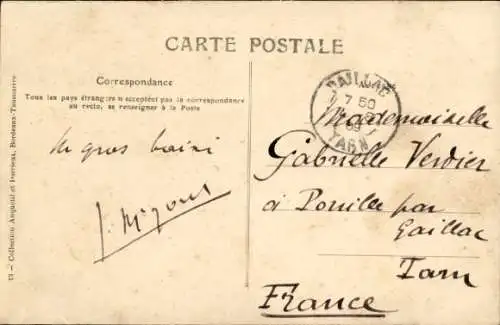 CARTE POSTALE
Correspondance
Tous les pays étrangers n'acceptent pas la correspondance
au recto, se renseigner à la Poste
13 — Collection Amquetil et Durrieau, Bordeaux-Tananarive
GAILLAC
7 50
09
TARN
Un gros baiser
J.
Mademoiselle
Gabrielle Verdier
à Pouille par
Gaillac
Tarn
France